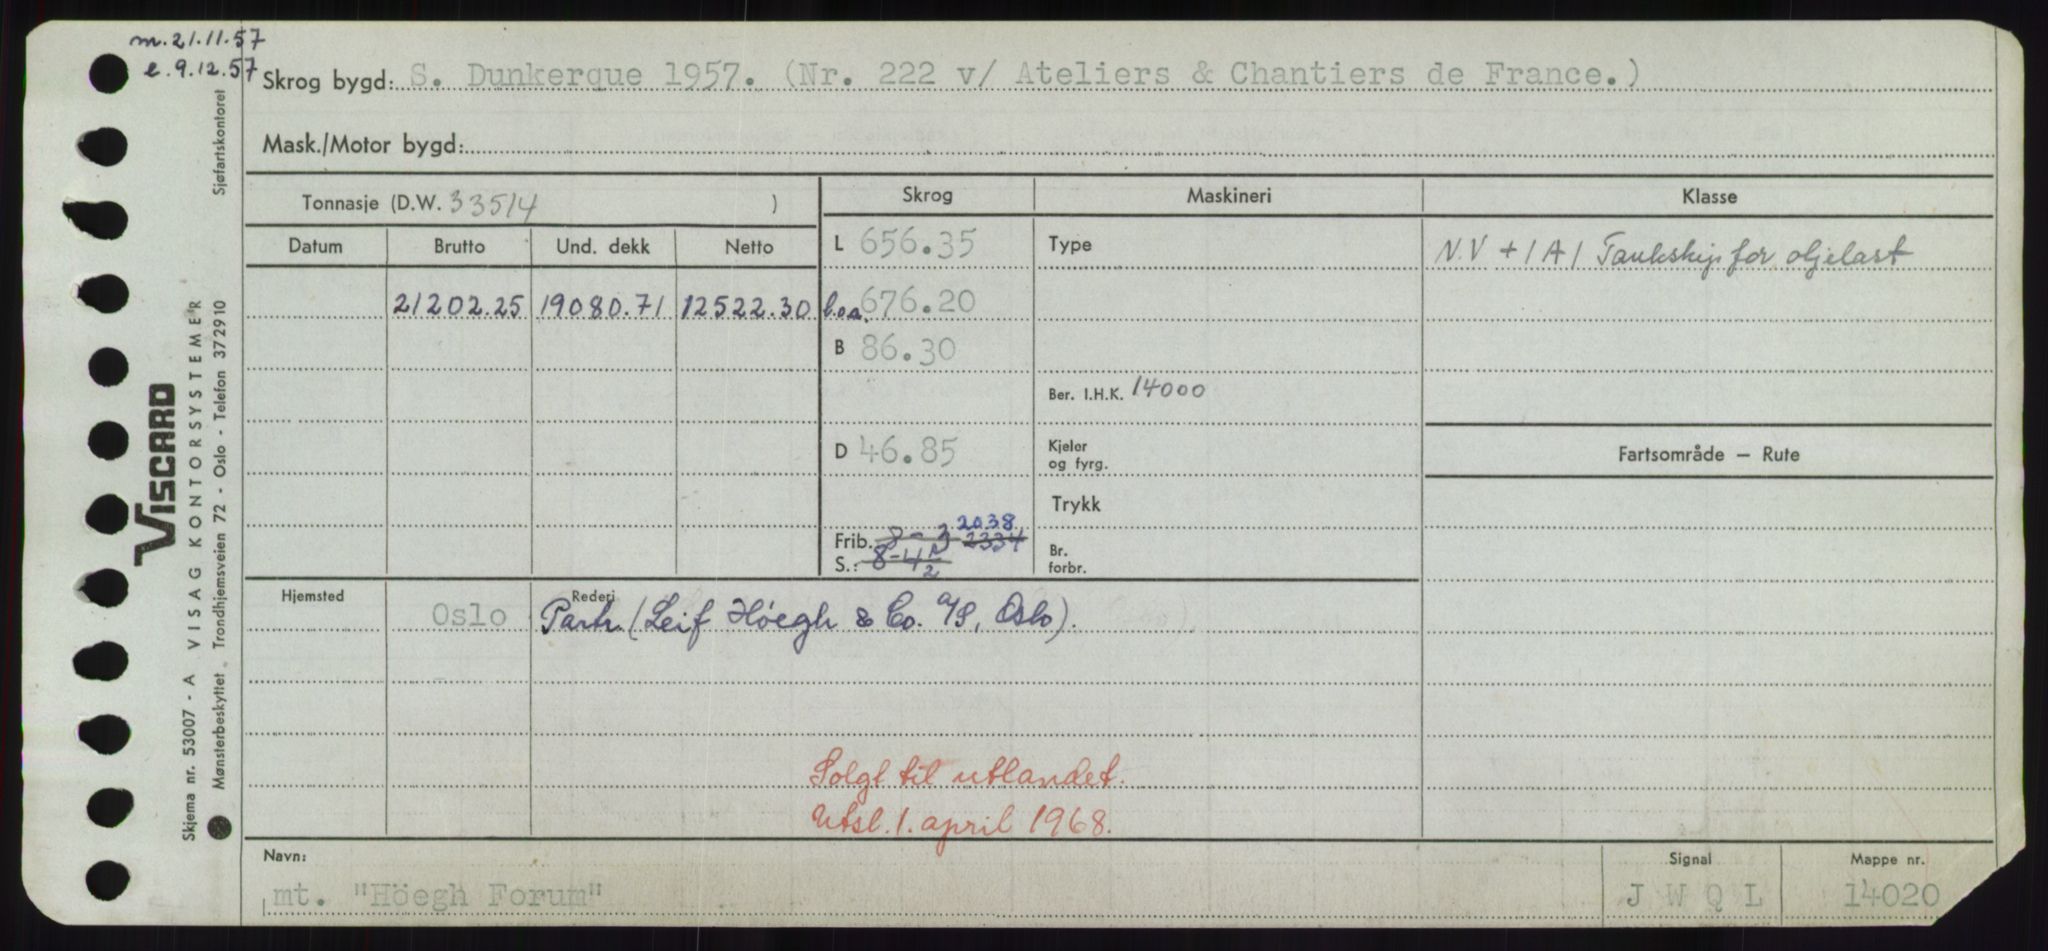 m. 21.11.57
e. 9.12.57
Skrog bygd: S. Dunkerque 1957. (Nr. 222 v/ Ateliers & Chantiers de France.)
Mask./Motor bygd:
Tonnasje (D.W. 33514 )
Skrog Maskineri Klasse
Datum Brutto Und. dekk Netto
L 656.35
Type
N.V + 1 A 1 Tankskip for oljelast
21202.25 19080.71 12522.30
l.o.a. 676.20
B 86.30
Ber. I.H.K. 14000
D 46.85
Kjeler og fyrg.
Fartsområde — Rute
Trykk
2038
Frib. 8-3 2334
S.: 8-4½
Br. forbr.
Hjemsted Rederi
Oslo Partr. (Leif Höegh & Co. A/S, Oslo).
Solgt til utlandet.
Utsl. 1. april 1968.
Navn: Signal Mappe nr.
mt. "Höegh Forum" J W Q L 14020
VISCARD
Skjema nr. 53007 - A VISAG KONTORSYSTEMER
Mønsterbeskyttet Trondhjemsveien 72 - Oslo - Telefon 372910 Sjøfartskontoret